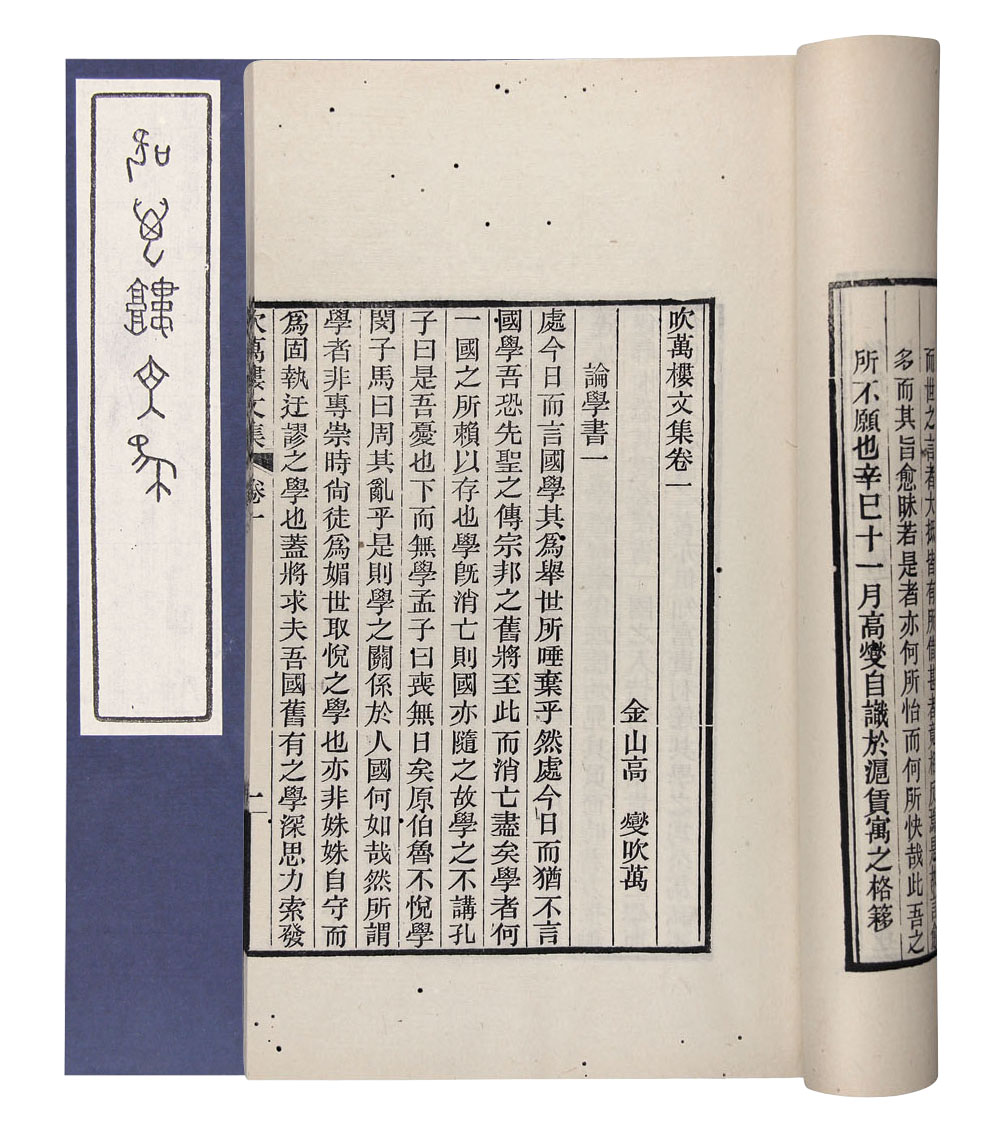 而世之言者大抵皆有所借
多而其旨愈昧若是者亦何所怡而何所快哉此吾之
所不願也辛巳十一月高燮自識於滬賃寓之格簃
吹萬樓文集卷一
金山高　燮吹萬
論學書一
處今日而言國學其爲舉世所唾棄乎然處今日而猶不言
國學吾恐先聖之傳宗邦之舊將至此而消亡盡矣學者何
一國之所賴以存也學旣消亡則國亦隨之故學之不講孔
子曰是吾憂也下而無學孟子曰喪無日矣原伯魯不悅學
閔子馬曰周其亂乎是則學之關係於人國何如哉然所謂
學者非專崇時尙徒爲媚世取悅之學也亦非姝姝自守而
爲固執迂謬之學也蓋將求夫吾國舊有之學深思力索發
吹萬樓文集　卷一　一
吹萬樓文集